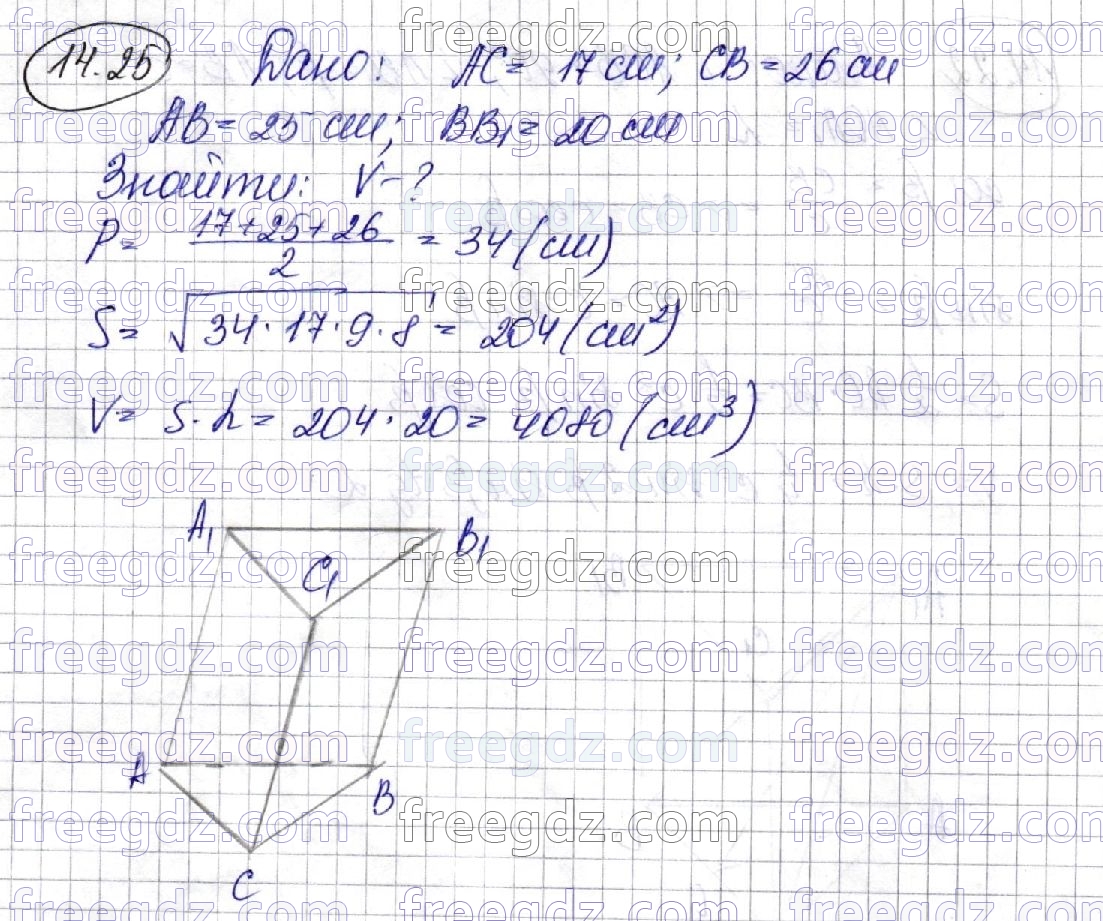 14.25 Дано: AC = 17 см; CB = 26 см
AB = 25 см; BB₁ = 20 см
Знайти: V - ?
P = (17+25+26)/2 = 34 (см)
S = √(34·17·9·8) = 204 (см²)
V = S·h = 204·20 = 4080 (см³)
A₁ B₁
C₁
A B
C
freegdz.com